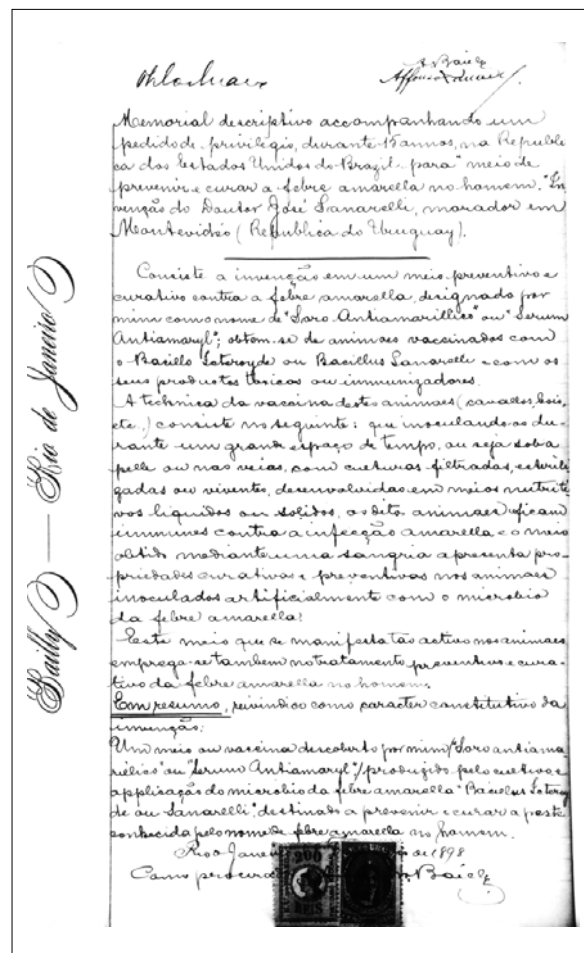 A Baielz
Affonso
Memorial descriptivo accompanhando um
pedido de privilegio, durante 15 annos, na Republi
ca dos Estados Unidos do Brazil para "meio de
prevenir e curar a febre amarella no homem," In
venção do Doutor José Sanarelli, morador em
Montevidéo (Republica do Uruguay).
Consiste a invenção em um meio preventivo e
curativo contra a febre amarella, designado por
mim com o nome de "Soro Antiamarillico" ou "Serum
Antiamaryl"; obtem-se de animaes vaccinados com
o Bacillo Icteroyde ou Bacillus Sanarelli e com os
seus productos toxicos ou immunizadores.
A technica da vaccina destes animaes (cavallos, bois,
etc.) consiste no seguinte: que inoculando-os du-
rante um grande espaço de tempo, ou seja sob a
pelle ou nas veias, com culturas filtradas, esterili
zadas ou viventes, desenvolvidas em meios nutriti
vos liquidos ou solidos, os ditos animaes ficam
immunes contra a infecção amarella e o meio
obtido mediante uma sangria apresenta pro-
priedades curativas e preventivas nos animaes
inoculados artificialmente com o microbio
da febre amarella.
Este meio que se manifesta tão activo nos animaes
emprega-se tambem no tratamento preventivo e cura-
tivo da febre amarella no homem.
Em resumo, reivindico como caracter constitutivo da
invenção:
Um meio ou vaccina descoberto por mim / "Soro antiama
rillico" ou "Serum Antiamaryl" / produzido pelo cultivo e
applicação do microbio da febre amarella "Bacillus Icteroy
de ou Sanarelli", destinado a prevenir e curar a peste
conhecida pelo nome de febre amarella no homem.
Rio de Janeiro de 1898
Como procurador Baielz
200
REIS
Bailly — Rio de Janeiro